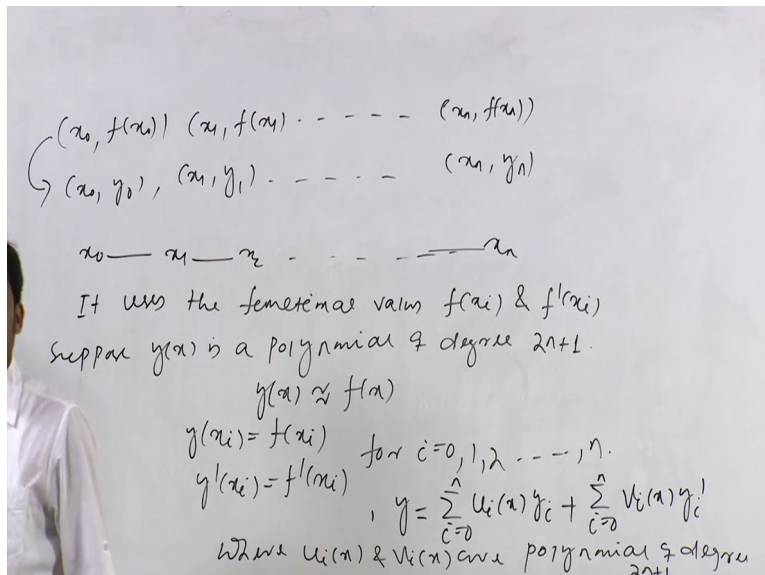 (x₀, f(x₀)) (x₁, f(x₁) - - - - - - (xₙ, f(xₙ))
(x₀, y₀), (x₁, y₁) - - - - - - (xₙ, yₙ)
x₀ — x₁ — x₂ - - - - - — xₙ
It uses the values f(xᵢ) & f'(xᵢ)
Suppose y(x) is a polynomial of degree 2n+1.
y(x) ≈ f(x)
y(xᵢ) = f(xᵢ)
y'(xᵢ) = f'(xᵢ) for i=0,1,2 - - - -, n.
, y = ∑ᵢ₌₀ⁿ Uᵢ(x) yᵢ + ∑ᵢ₌₀ⁿ Vᵢ(x) yᵢ'
Where Uᵢ(x) & Vᵢ(x) are polynomial of degree
2n+1